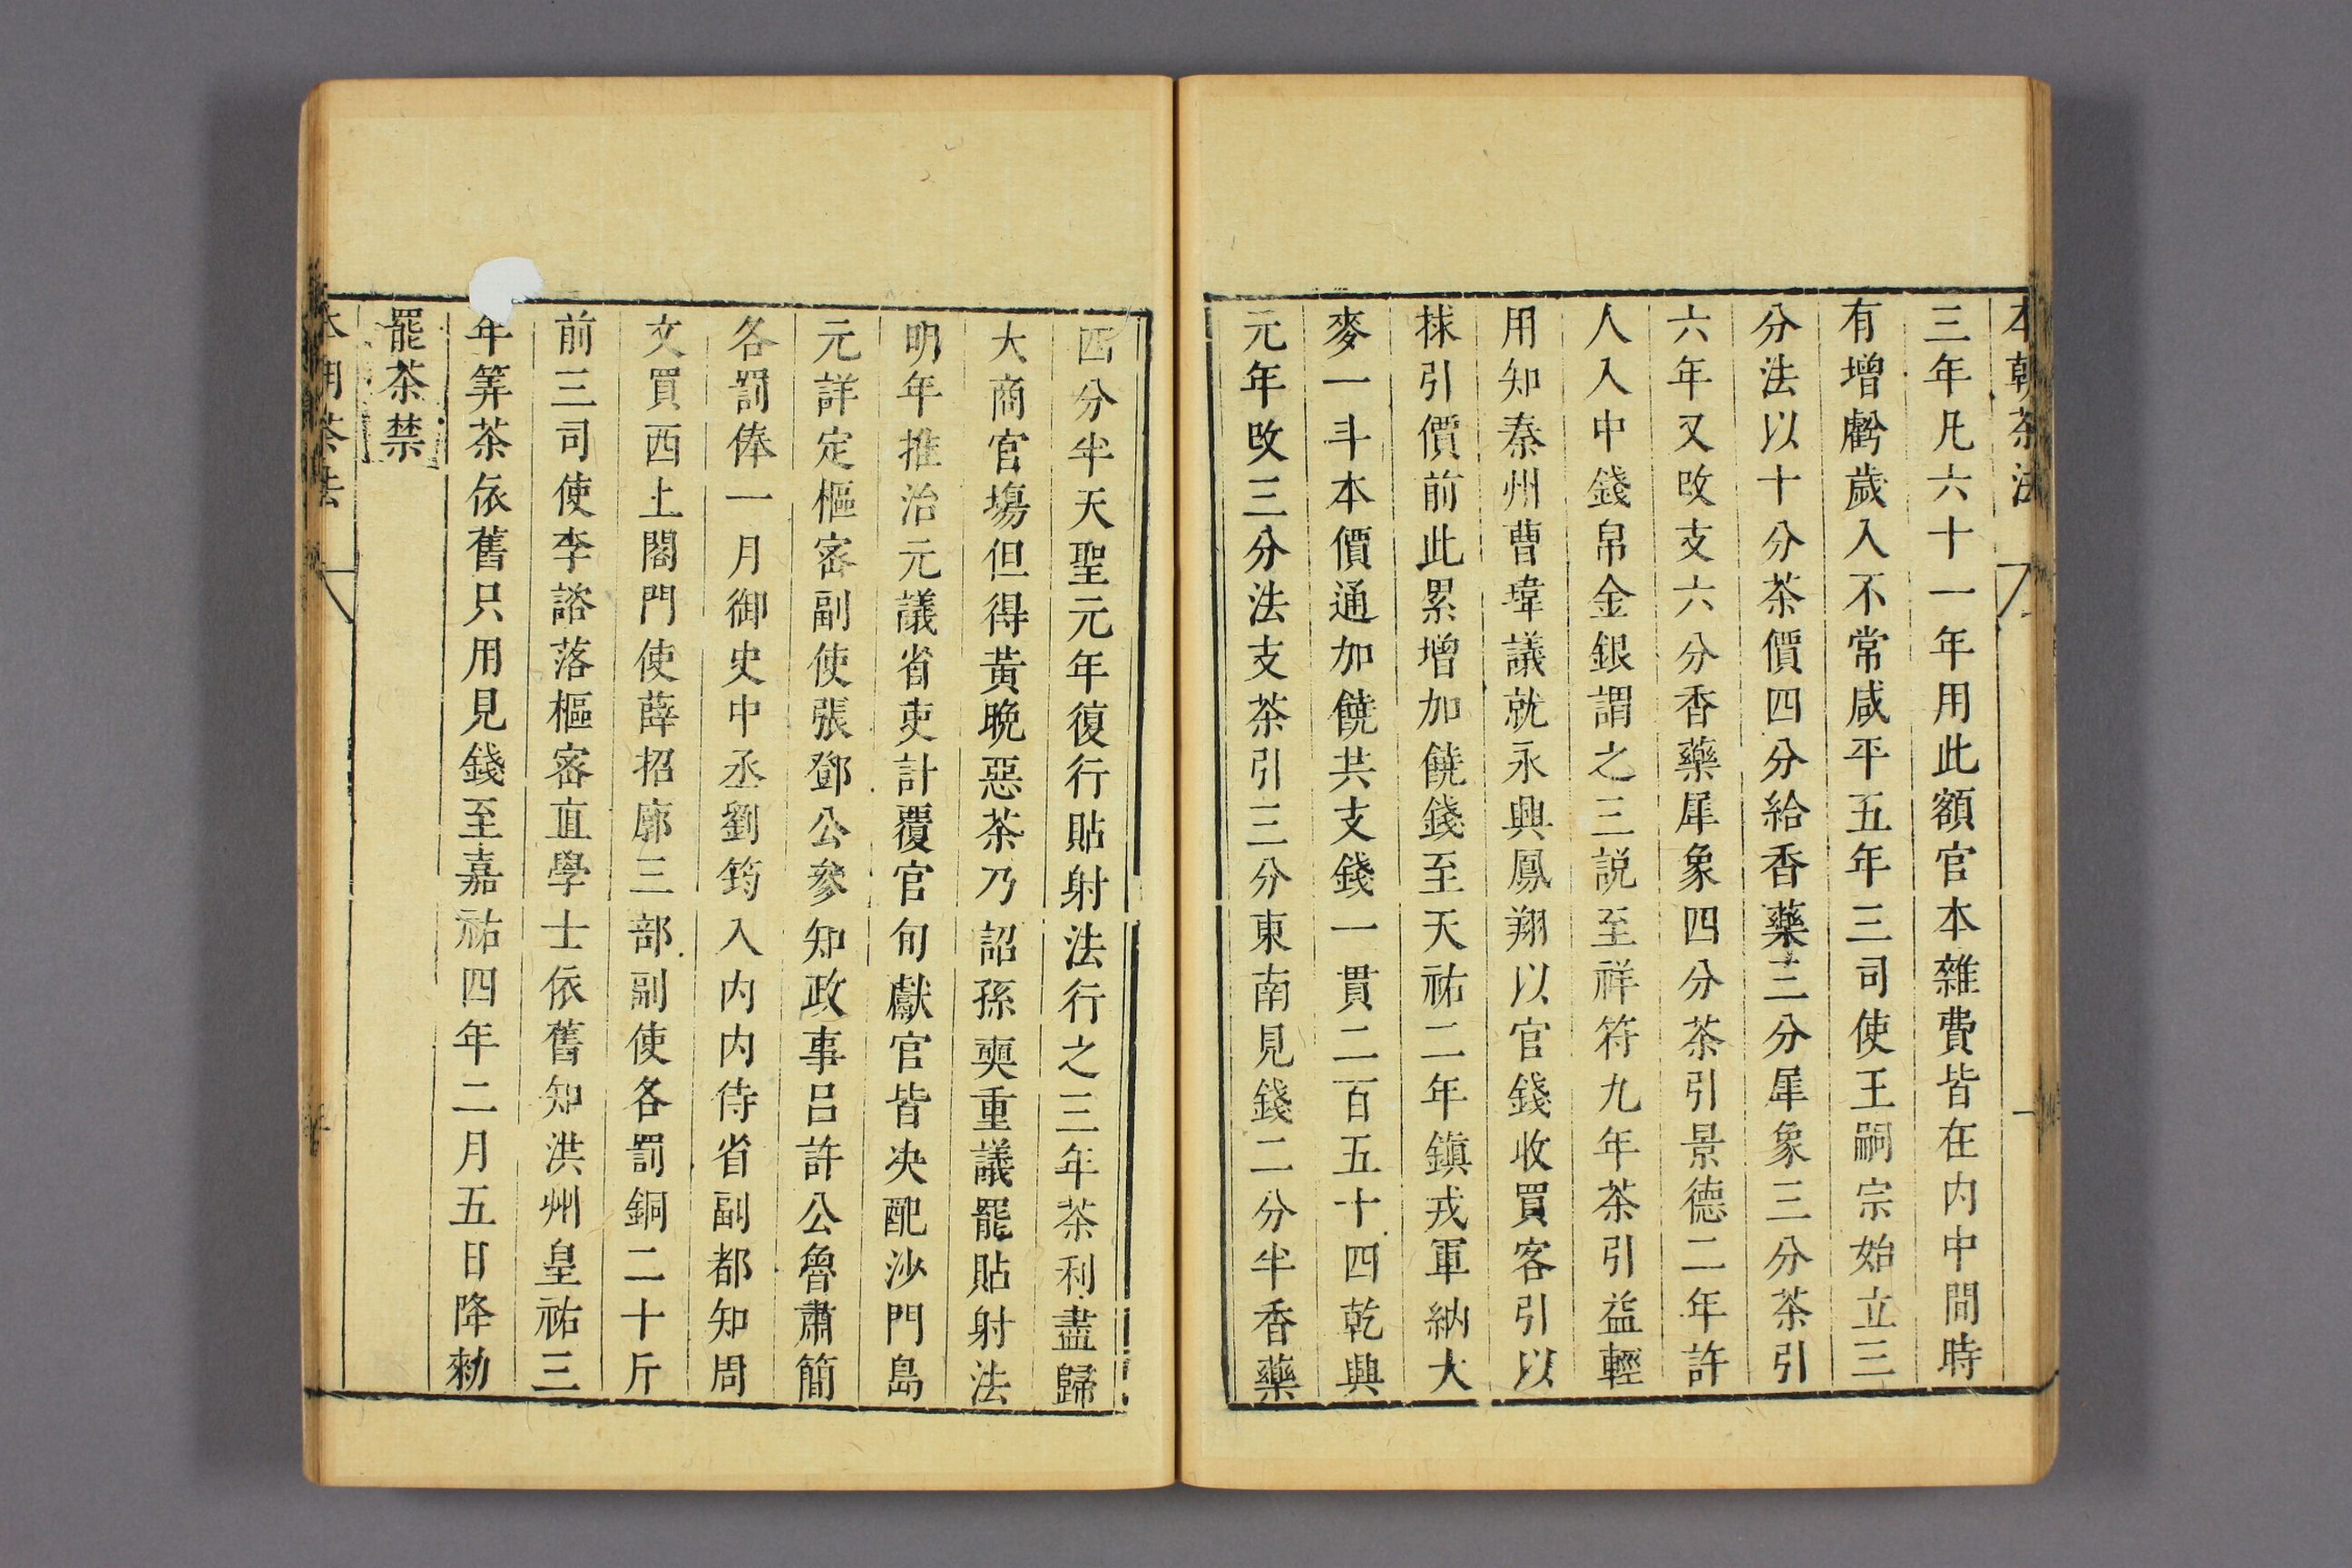 本朝茶法
三年凡六十一年用此額官本雜費皆在内中間時
有增虧歲入不常咸平五年三司使王嗣宗始立三
分法以十分茶價四分給香藥三分犀象三分茶引
六年又改支六分香藥犀象四分茶引景德二年許
人入中錢帛金銀謂之三説至祥符九年茶引益輕
用知秦州曹瑋議就永興鳳翔以官錢收買客引以
捄引價前此累增加饒錢至天祐二年鎮戎軍納大
麥一斗本價通加饒共支錢一貫二百五十四乾興
元年改三分法支茶引三分東南見錢二分半香藥
四分半天聖元年復行貼射法行之三年茶利盡歸
大商官場但得黃晚惡茶乃詔孫奭重議罷貼射法
明年推治元議省吏計覆官旬獻官皆决配沙門島
元詳定樞密副使張鄧公參知政事呂許公魯肅簡
各罰俸一月御史中丞劉筠入内内侍省副都知周
文質西上閤門使薛招廓三部副使各罰銅二十斤
前三司使李諮落樞密直學士依舊知洪州皇祐三
年筭茶依舊只用見錢至嘉祐四年二月五日降勑
罷茶禁
本朝茶法